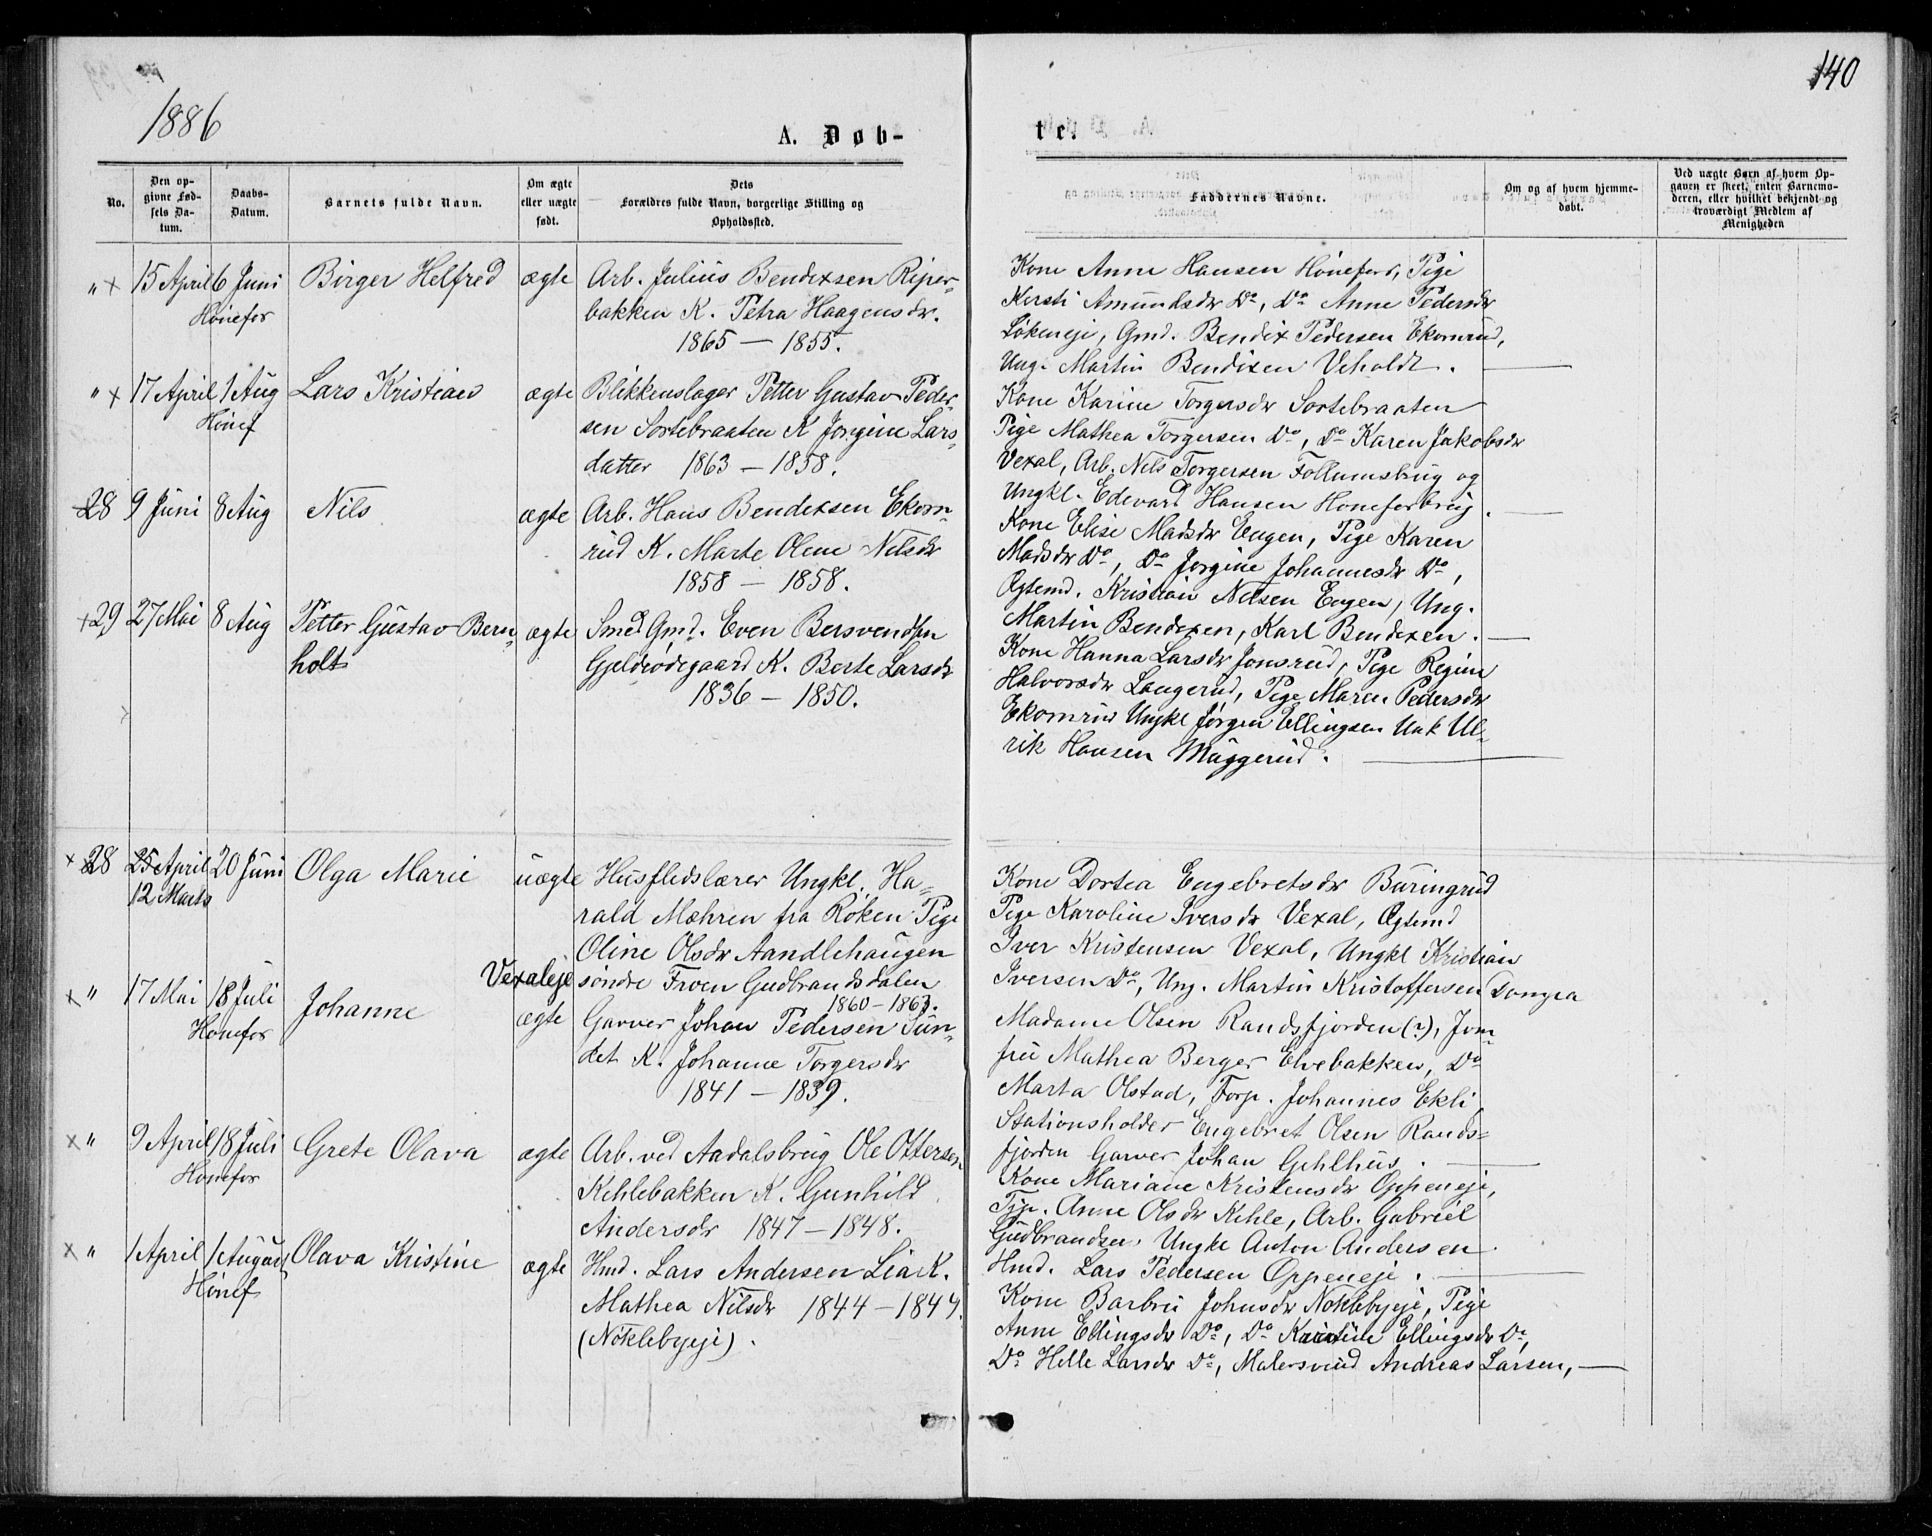 140
1886
A. Døb-
te.
No.
Den op-
givne Fød-
sels Da-
tum.
Daabs-
Datum.
Barnets fulde Navn.
Om ægte
eller uægte
født.
Dets
Forældres fulde Navn, borgerlige Stilling og
Opholdssted.
Faddernes Navne.
Om og af hvem hjemme-
døbt.
Ved uægte Barn af hvem Op-
gaven er skeet, enten Barnemo-
deren, eller hvilket bekjendt og
troværdigt Medlem af
Menigheden
" x 15 April 6 Juni Birger Helfred ægte Arb. Julius Bendixsen Riper-
Hønefos bakken K. Petra Haagensdr.
1865 — 1855.
Kone Anne Hansen Hønefos, Pige
Kersti Amundsdr Do, Do Anne Pedersdr
Løkeneje, Gmd. Bendix Pedersen Ekornrud,
Ung. Martin Bendixen Veholdt.
" x 17 April 1 Aug Lars Kristian ægte Blikkenslager Petter Gustav Peder-
Hønef sen Sortebraaten K Jørgine Lars-
datter 1863 — 1858.
Kone Karine Torgersdr Sortebraaten
Pige Mathea Torgersen Do, Do Karen Jakobsdr
Vexal, Arb. Nils Torgersen Follumsbrug og
Ungkl. Edevard Hansen Honefosbrug.
28 9 Juni 8 Aug Nils ægte Arb. Hans Bendixsen Ekorn-
rud K. Marte Olene Nilsdr
1858 — 1858.
Kone Elise Madsdr Engen, Pige Karen
Madsdr Do, Do Jørgine Johannesdr Do,
Ægtemd. Kristian Nilsen Engen, Ung.
Martin Bendixen, Karl Bendixen.
x 29 27 Mai 8 Aug Petter Gustav Bern- ægte Smed Gmd. Even Bersvendsen
holt Gjeldsødegaard K. Berte Larsdr
1836 — 1850.
Kone Hanna Larsdr Jonsrud, Pige Regine
Halvorsdr Langerud, Pige Maren Pedersdr
Ekornrud Ungkl Jørgen Ellingsen Unk Ul-
rik Hansen Muggerud.
x 28 25 April 20 Juni Olga Marie uægte Husflidslærer Ungkl. Ha-
12 Marts rald Mæhren fra Røken Pige
Oline Olsdr Aandlehaugen
Vexaleje søndre Froen Gudbrandsdalen
1860 — 1863.
Kone Dortea Engebretsdr Buringrud
Pige Karoline Iversdr Vexal, Ægtemd
Iver Kristensen Vexal, Ungkl Kristian
Iversen Do, Ung. Martin Kristoffersen
x " 17 Mai 18 Juli Johanne ægte Garver Johan Pedersen Sun-
Hønefos det K. Johanne Torgersdr
1841 — 1839.
Madame Olsen Randsfjorden (?), Jom-
fru Mathea Berger Elvebakken, Do
Marta Olstad, Forp. Johannes Ekli
Stationsholder Engebret Olsen Rands-
fjorden Garver Johan Gehlhus.
x " 9 April 18 Juli Grete Olava ægte Arb. ved Aadalsbrug Ole Ottersen
Hønefos Kihlebakken K. Gunhild
Andersdr 1847 — 1848.
Kone Mariane Kristensdr Oppeneje,
Tjp. Anne Olsdr Kihle, Arb. Gabriel
Gudbrandsen, Ungkl Anton Andersen.
Hmd. Lars Pedersen Oppeneje.
x " 1 April 1 August Olava Kristine ægte Hmd. Lars Andersen Lia K.
Hønef Mathea Nilsdr 1844 — 1844.
(Nøklebyeje).
Kone Barbru Johnsdr Noklebyeje, Pige
Anne Ellingsdr Do, Do Kristine Ellingsdr Do,
Do Helle Larsdr Do, Malersvend Andreas Larsen,